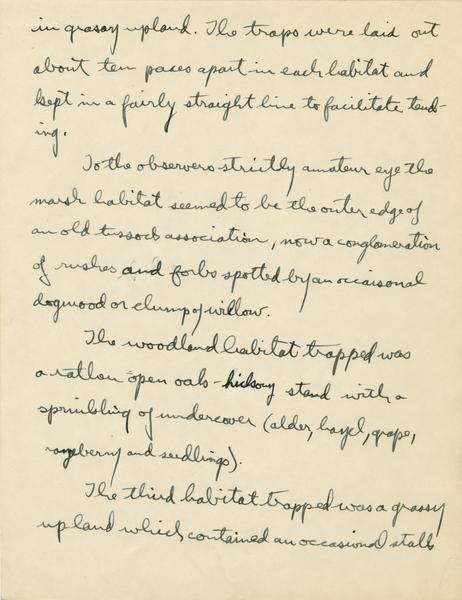 in grassy upland. The traps were laid out
about ten paces apart in each habitat and
kept in a fairly straight line to facilitate tend-
ing.
To the observers strictly amateur eye the
marsh habitat seemed to be the outer edge of
an old tussock association, now a conglomeration
of rushes and forbs spotted by an occaisonal
dogwood or clump of willow.
The woodland habitat trapped was
a rather open oak-hickory stand with a
sprinkling of undercover (alder, hazel, grape,
raspberry and seedlings).
The third habitat trapped was a grassy
upland which contained an occasional stalk